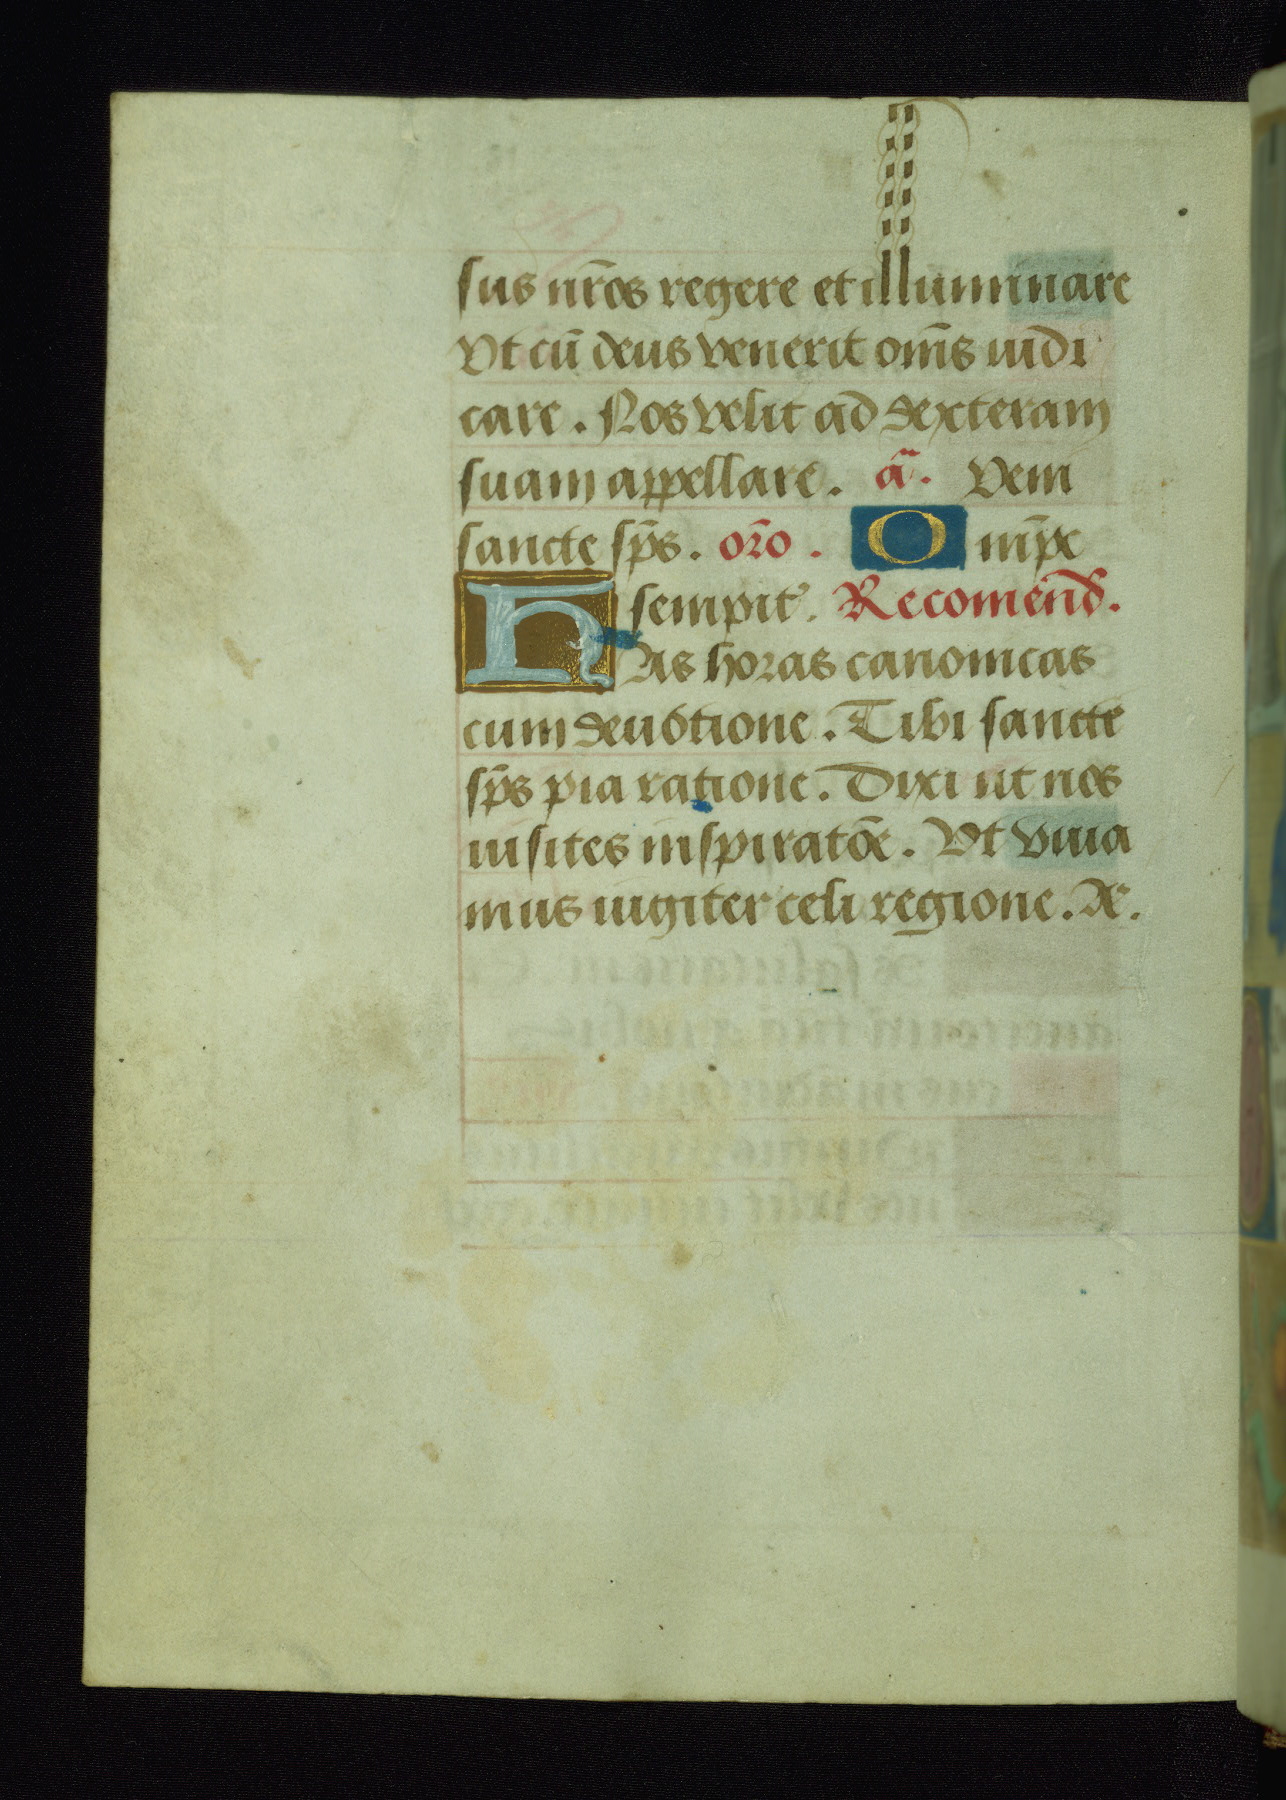 sus nr̄os regere et illuminare
Vt cū deus venerit om̄s iudi
care . Nos velit ad dexteram
suam appellare . a͞. Veni
sancte sp̄s . or̄o . O mp̄e
sempit᷒. Recomēnd̄.
HAs horas canonicas
cum deuotione . Tibi sancte
sp̄s pia ratione . Dixi ut nos
uisites inspiratōe . Vt viua
mus iugiter celi regione . Ae᷒.